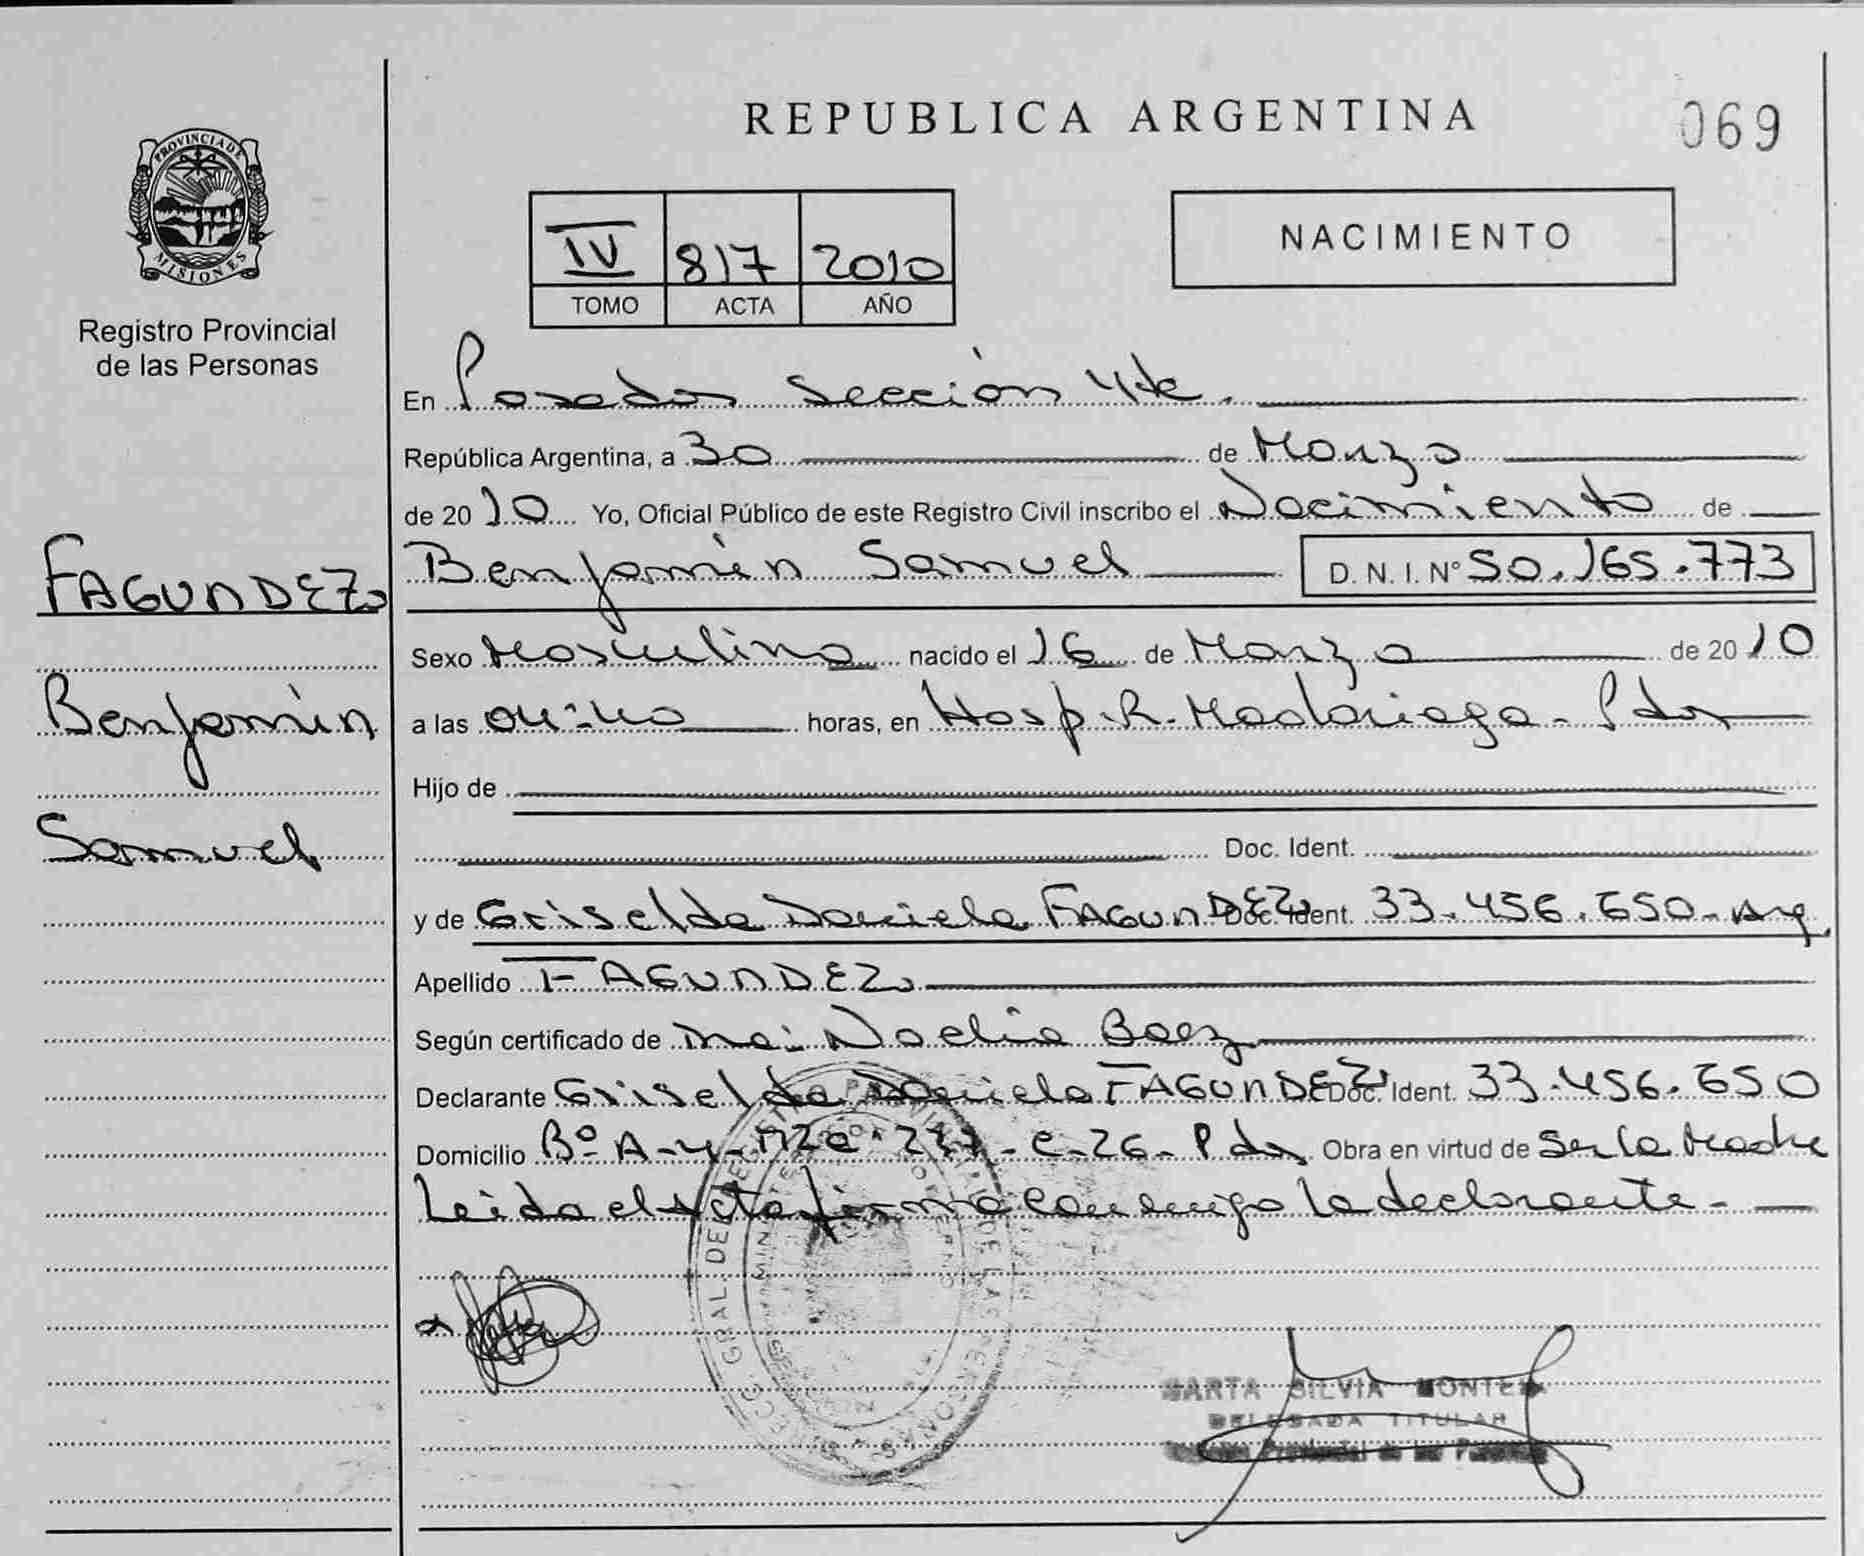 REPUBLICA ARGENTINA
069
PROVINCIA DE
MISIONES
Registro Provincial
de las Personas
IV 817 2010
TOMO ACTA AÑO
NACIMIENTO
En Posadas Sección 4ta.
República Argentina, a 30 de Marzo
de 2010 Yo, Oficial Público de este Registro Civil inscribo el Nacimiento de
FAGUNDEZ
Benjamín
Samuel
Benjamín Samuel D. N. I. N° 50.165.773
Sexo Masculino nacido el 16 de Marzo de 2010
a las 04:40 horas, en Hosp. R. Madariaga - Pdas
Hijo de
Doc. Ident.
y de Griselda Daniela FAGUNDEZ Doc. Ident. 33.456.650 - Arg.
Apellido FAGUNDEZ
Según certificado de Noelia Baez
Declarante Griselda Daniela FAGUNDEZ Doc. Ident. 33.456.650
Domicilio Bº A-4- Mza. 277 - C-26 - Pdas Obra en virtud de Ser la Madre
Leida el Acta firma conmigo la declarante -
SILVIA
DELEGADA TITULAR
Provincial de las Personas